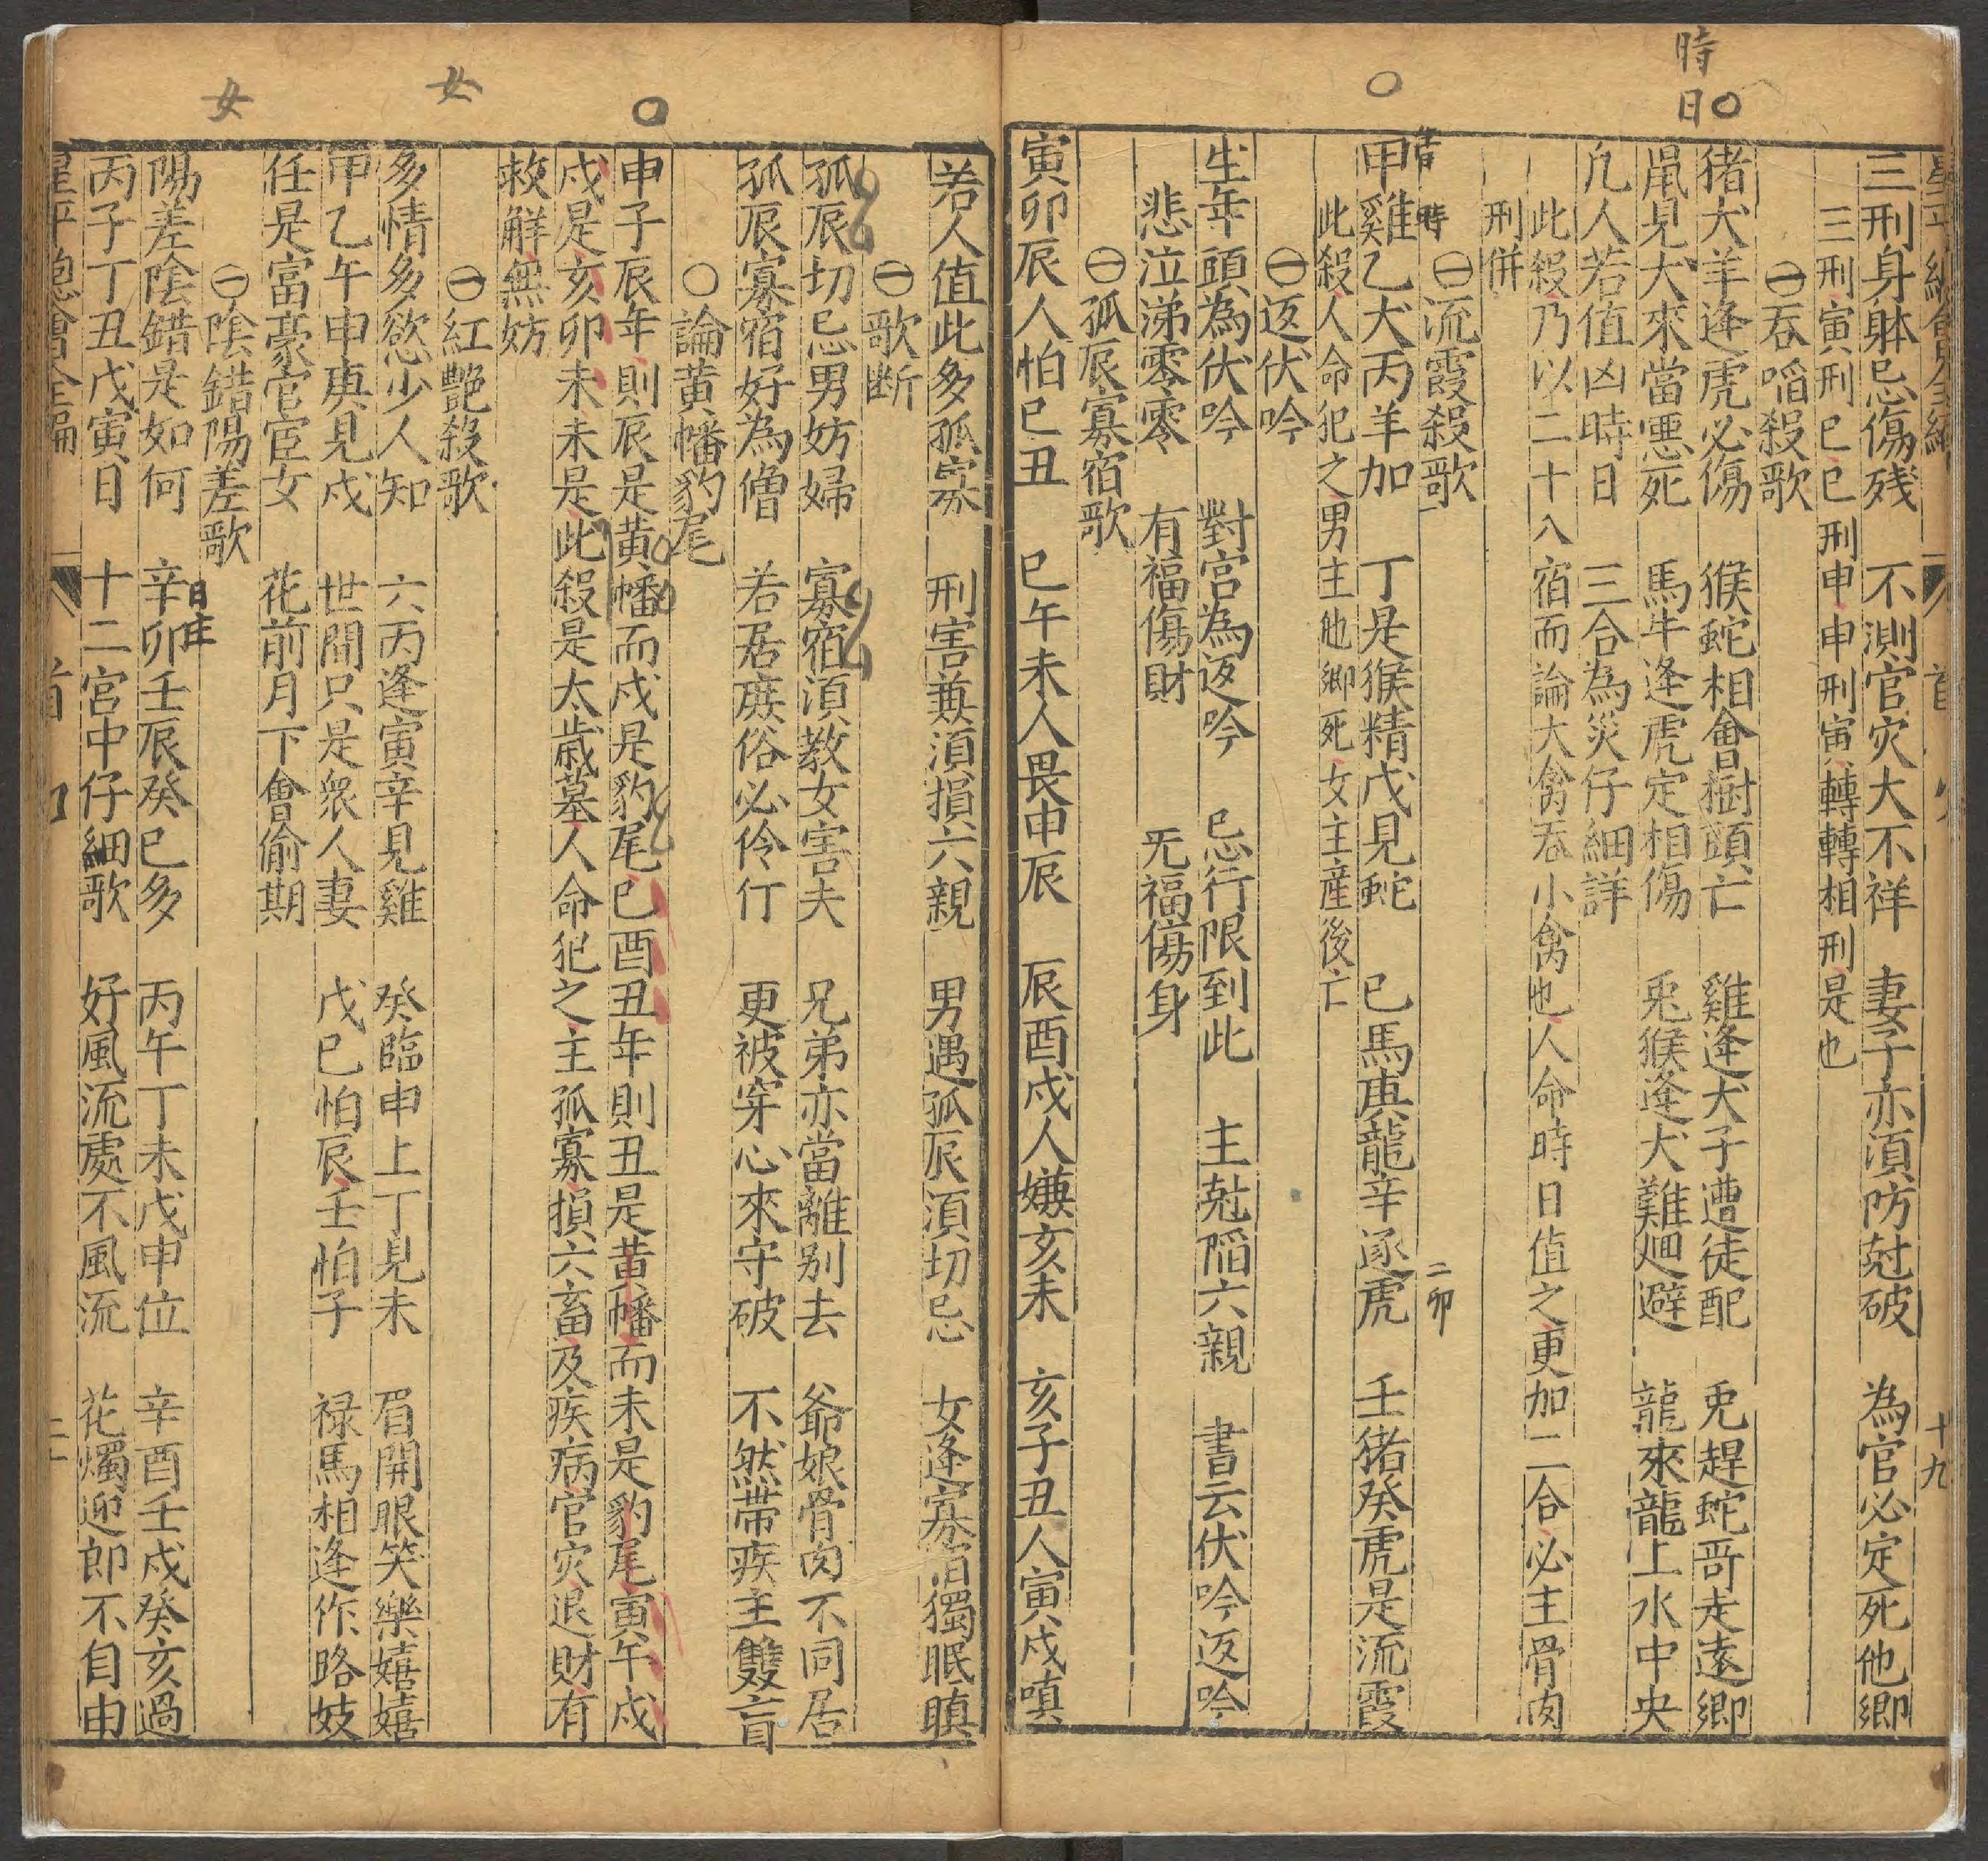 時
日
三刑身躰忌傷残　不測官灾大不祥　妻子亦須防尅破　為官必定死他鄉
三刑寅刑巳巳刑申申刑寅轉轉相刑是也
㊀吞啗殺歌
猪犬羊逢虎必傷　猴蛇相會樹頭亡　雞逢犬子遭徒配　兎趕蛇哥走遠鄉
鼠見犬來當悪死　馬牛逢虎定相傷　兎猴逢犬難廻避　龍來龍上水中央
凢人若值凶時日　三合為災仔細詳
此殺乃以二十八宿而論大禽吞小禽也人命時日值之更加二合必主骨肉
刑併
㊀流霞殺歌
時
甲雞乙犬丙羊加　丁是猴精戊見蛇　巳馬庚龍辛逐虎　壬猪癸虎是流霞
二卯
此殺人命犯之男主他鄉死女主産後亡
㊀返伏吟
生年頭為伏吟　對宮為返吟　忌行限到此　主尅陷六親　書云伏吟返吟
悲泣涕零零　有福傷財　旡福傷身
㊀孤辰寡宿歌
寅卯辰人怕巳丑　巳午未人畏申辰　辰酉戍人嫌亥未　亥子丑人寅戍嗔
若人值此多孤寡　刑害兼須損六親　男遇孤辰須切忌　女逢寡宿獨眠瞋
㊀歌断
孤辰切忌男妨婦　寡宿須教女害夫　兄弟亦當離别去　爺娘骨肉不同居
孤辰寡宿好為僧　若居庶俗必伶仃　更被穿心來守破　不然带疾主雙盲
〇論黄幡豹尾
申子辰年則辰是黄幡而戍是豹尾巳酉丑年則丑是黄幡而未是豹尾寅午戍
戍是亥卯未未是此殺是太歲墓人命犯之主孤寡損六畜及疾病官灾退財有
救解無妨
㊀紅艶殺歌
女
多情多慾少人知　六丙逢寅辛見雞　癸臨申上丁見未　眉開眼笑樂嬉嬉
甲乙午申庚見戍　世間只是衆人妻　戊巳怕辰壬怕子　禄馬相逢作路妓
任是富豪官宦女　花前月下會偷期
女
㊀陰錯陽差歌
日主
陽差陰錯是如何　辛卯壬辰癸巳多　丙午丁未戊申位　辛酉壬戍癸亥過
丙子丁丑戊寅日　十二宮中仔細歌　好風流處不風流　花燭迎郎不自由